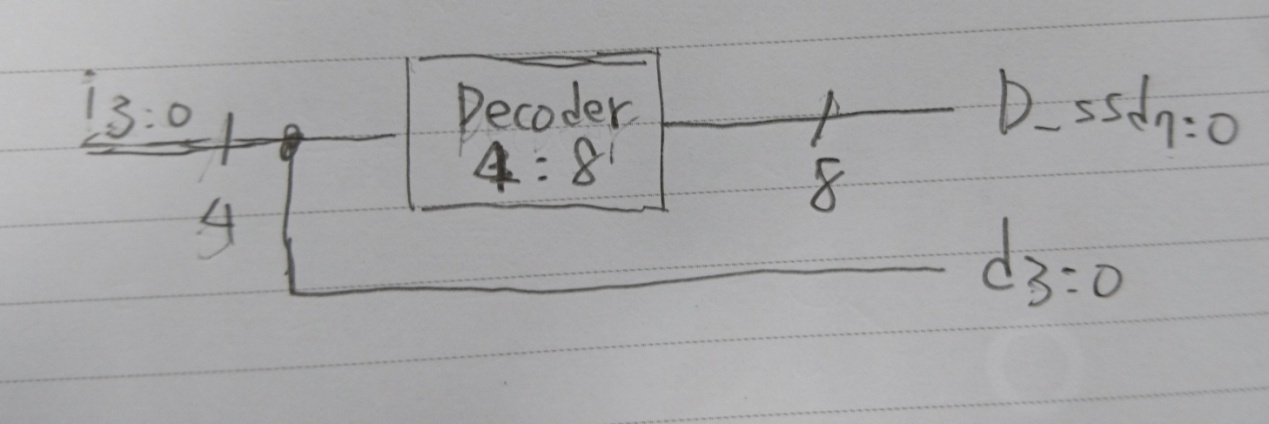 i3:0
4
Decoder
4:8
8
D_ssd7:0
d3:0